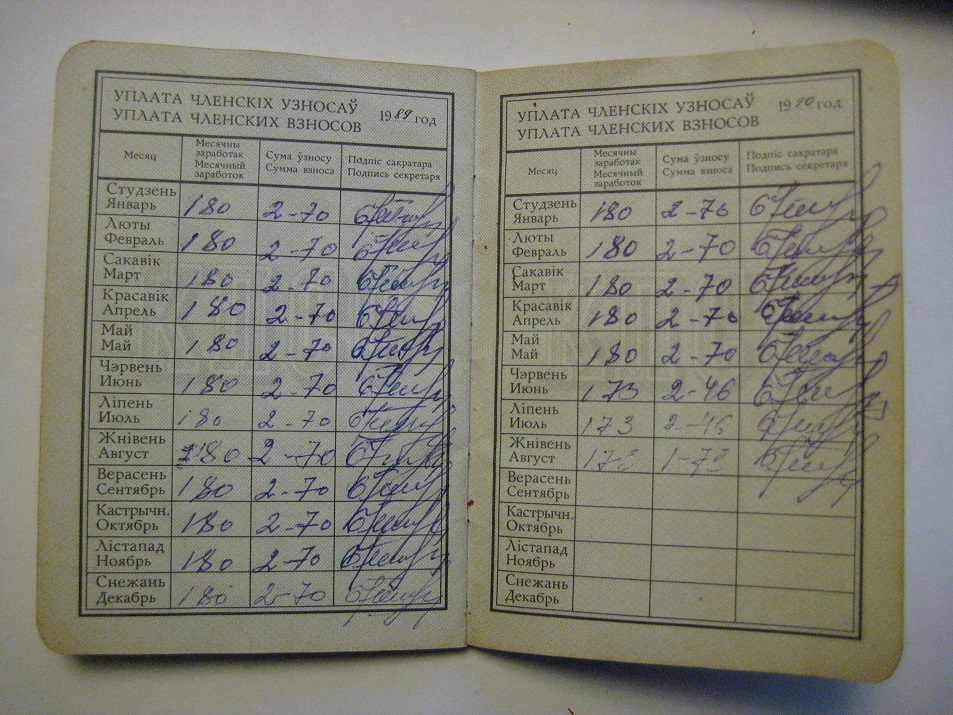 УПЛАТА ЧЛЕНСКІХ УЗНОСАЎ
УПЛАТА ЧЛЕНСКИХ ВЗНОСОВ
1989 год
Месяц
Месячны
заработак
Месячный
заработок
Сума ўзносу
Сумма взноса
Подпіс сакратара
Подпись секретаря
Студзень
Январь 180 2-70
Люты
Февраль 180 2-70
Сакавік
Март 180 2-70
Красавік
Апрель 180 2-70
Май
Май 180 2-70
Чэрвень
Июнь 180 2-70
Ліпень
Июль 180 2-70
Жнівень
Август 180 2-70
Верасень
Сентябрь 180 2-70
Кастрычн.
Октябрь 180 2-70
Лістапад
Ноябрь 180 2-70
Снежань
Декабрь 180 2-70
УПЛАТА ЧЛЕНСКІХ УЗНОСАЎ
УПЛАТА ЧЛЕНСКИХ ВЗНОСОВ
1990 год
Месяц
Месячны
заработак
Месячный
заработок
Сума ўзносу
Сумма взноса
Подпіс сакратара
Подпись секретаря
Студзень
Январь 180 2-70
Люты
Февраль 180 2-70
Сакавік
Март 180 2-70
Красавік
Апрель 180 2-70
Май
Май 180 2-70
Чэрвень
Июнь 173 2-46
Ліпень
Июль 173 2-46
Жнівень
Август 173 1-73
Верасень
Сентябрь
Кастрычн.
Октябрь
Лістапад
Ноябрь
Снежань
Декабрь